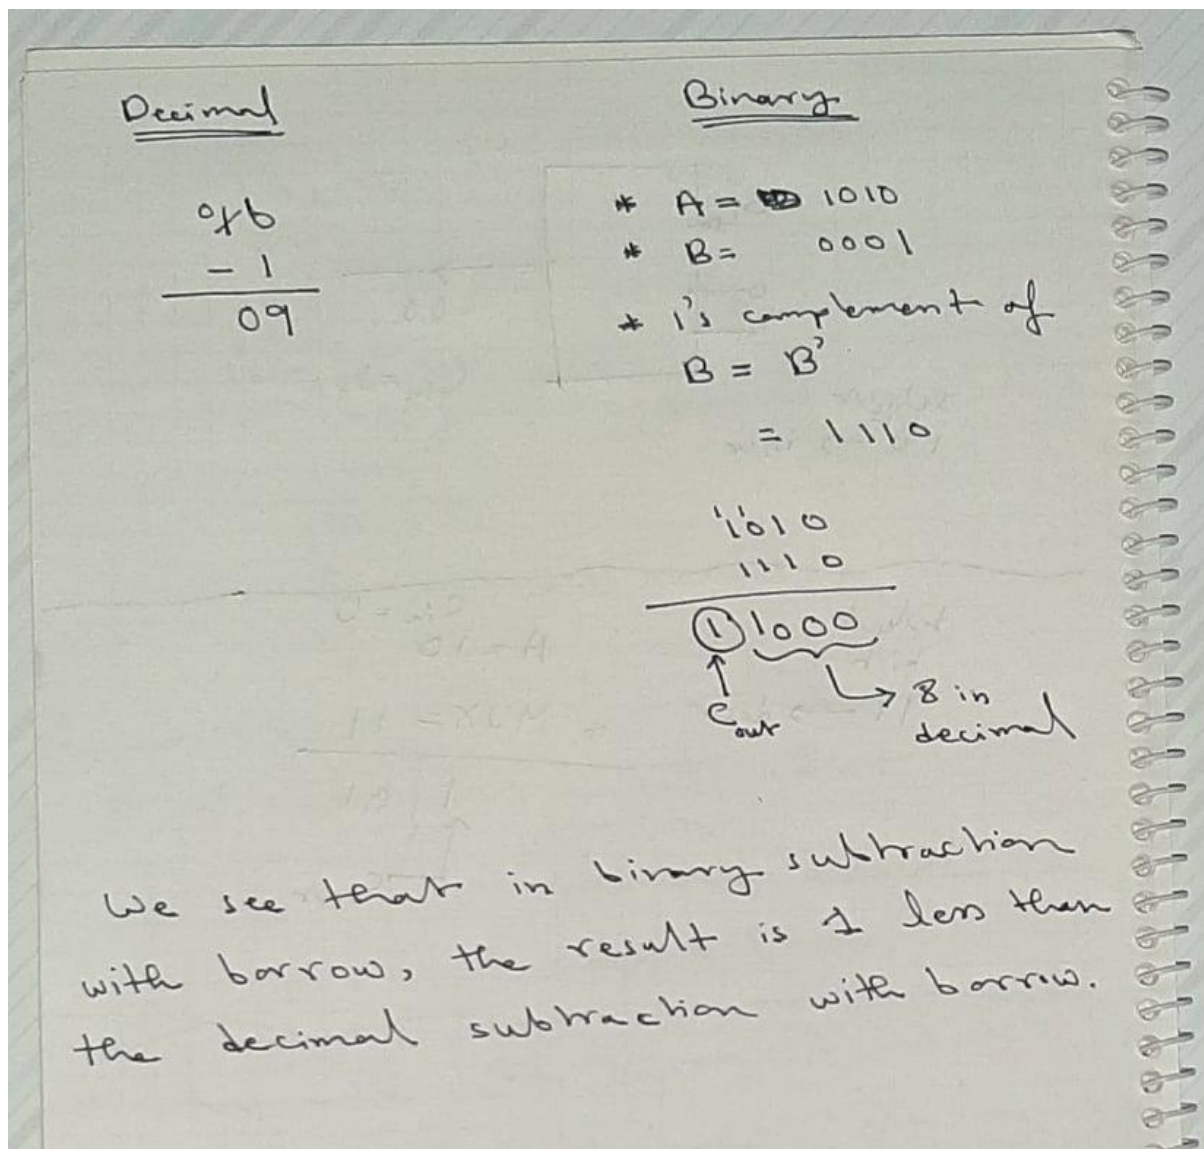 Decimal
Binary
0 1 6
- 1
09
* A = 1010
* B = 0001
* 1's complement of
B = B'
= 1110
1 1
1010
1110
1 1000
Cout
8 in
decimal
We see that in binary subtraction
with borrow, the result is 1 less than
the decimal subtraction with borrow.